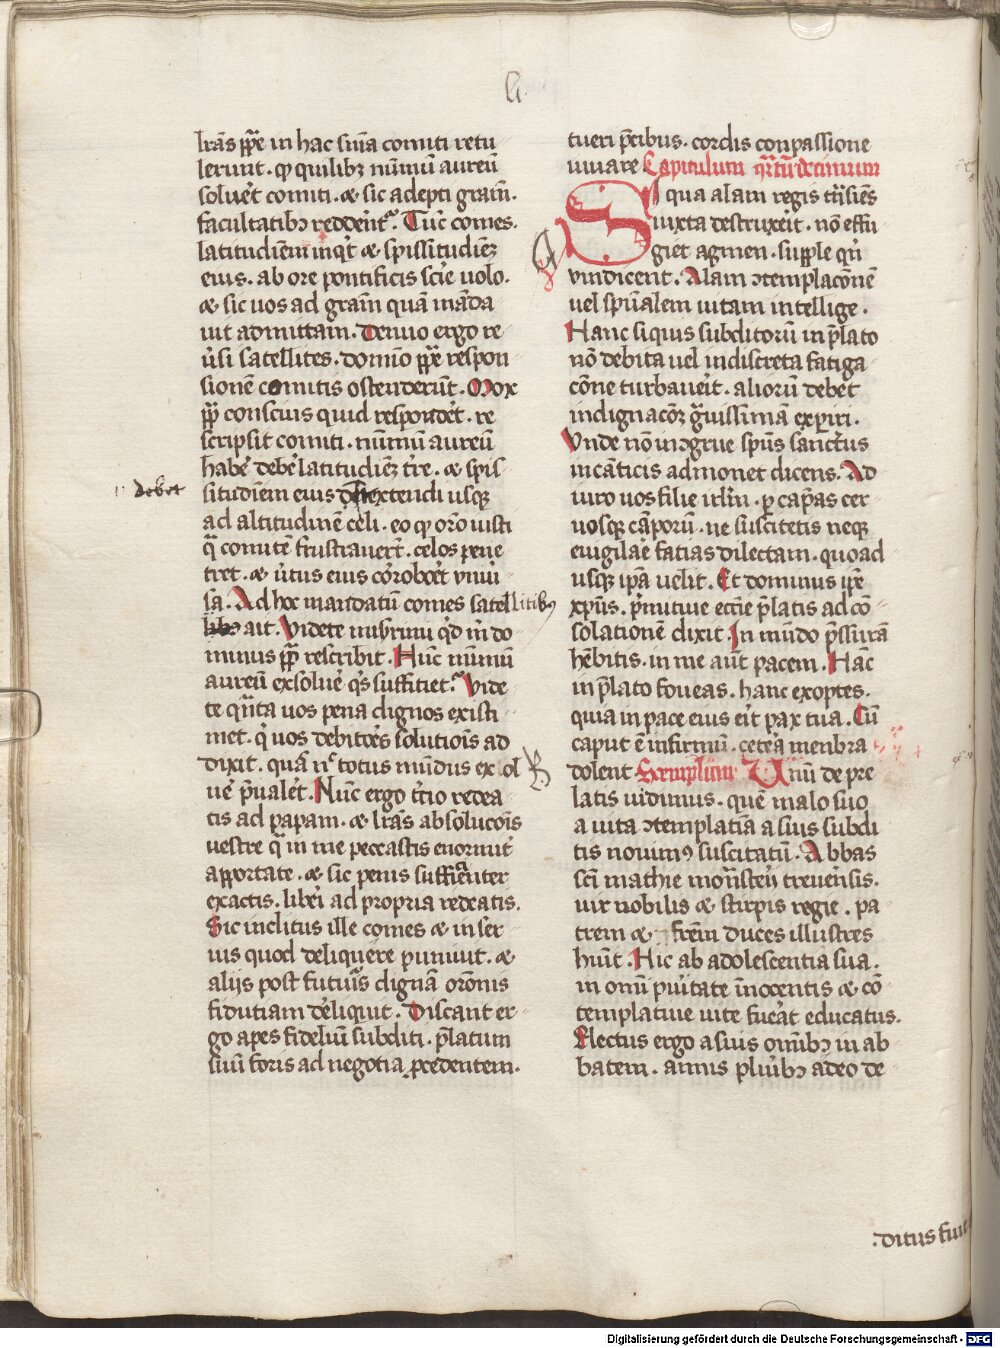 li
lrãs ppe in hac suia comiti retu
lerunt . qp quilibz nũmũ aureũ
soluet comiti . & sic adepti gratiã .
facultatibꝫ reddent᷑ . Tuc comes .
latitudiem inqt & spissitudiez
eius . ab ore pontificis scie uolo .
& sic uos ad gratiã quã mãda
uit admittam . Denuo ergo re
uersi satellites . domino ppe respon
sionẽ comitis ostenderũt . Mox
pp conscius quid responderet . re
scripsit comiti . nũmũ aureũ
habe debe latitudiez tre . & spis
debet
situdiem eius extendi usqꝫ
ad altitudinẽ celi . eo qp oro iusti
q comitẽ frustrauert . celos pene
tret . & uirtus eius coroboret vniu
sa . Ad hoc mandatũ comes satellitibꝰ
ait . Videte inqd mi do
minus pp rescribit . Hũc nũmũ
aureũ exsolue qs suffitiet . Vide
te qnta uos pena dignos existi
met . q uos debitores solutiois ad
dixit . quã nec totus mũdus exsol
ue p̃ualet . Nũc ergo tertio redea
tis ad papam . & lrãs absolucois
vestre q in me peccastis enormit
apportate . & sic penis sufficienter
exactis . liberi ad propria redeatis .
Sic inclitus ille comes & in ser
uis quod deliquere puniuit . &
alijs post futuris dignã oronis
fidutiam deliquit . Discant er
go apes fideliũ subditi . p̃latum
suũ foris ad negotia procedentem .
tueri p̃cibus . cordis conpassione
iuuare Capitulum qrtũdecimum
Si qua alam regis tiisiẽs
iuxta destruxeit . nõ effu
giet agmen . supple qn
vindicent . Alam ↄtemplaconẽ
uel spũalem uitam intellige .
Hanc si quis subditorũ in p̃lato
nõ debita uel indiscreta fatiga
cõne turbaueit . aliorũ debet
indignacoẽ grauissimã expiri .
Vnde nõ inↄgrue spũs sanctus
in cãticis admonet dicens . Ad
iuro uos filie irlm . p cap̃as cer
uosqꝫ cãporũ . ne suscitetis neqꝫ
euigilãe fatias dilectam . quoad
usqꝫ ipã uelit . Et dominus ipẽ
xp̃us . p̃mitiue ecclie p̃latis ad cõ
solationẽ dixit . In mũdo p̃ssurã
hẽbitis . in me aut̃ pacem . Hãc
in p̃lato foueas . hanc exoptes .
quia in pace eius eit pax tua . Cũ
caput ẽ infirmũ . cetea menbra
dolent . Exemplum Unũ de pre
latis uidimus . quẽ malo suo
a uita ↄtemplatiã a suis subdi
tis nouimꝰ suscitatũ . Abbas
scĩ mathie monsterij treuẽsis .
uir nobilis & stirpis regie . pa
trem & frẽm duces illustres
huit . Hic ab adolescentia sua .
in omi puritate inocentis & cõ
templatiue uite fuerat educatus .
Electus ergo a suis omĩbꝫ in ab
batem . annis pluribꝫ adeo de
. ditus fuit
Digitalisierung gefördert durch die Deutsche Forschungsgemeinschaft - DFG